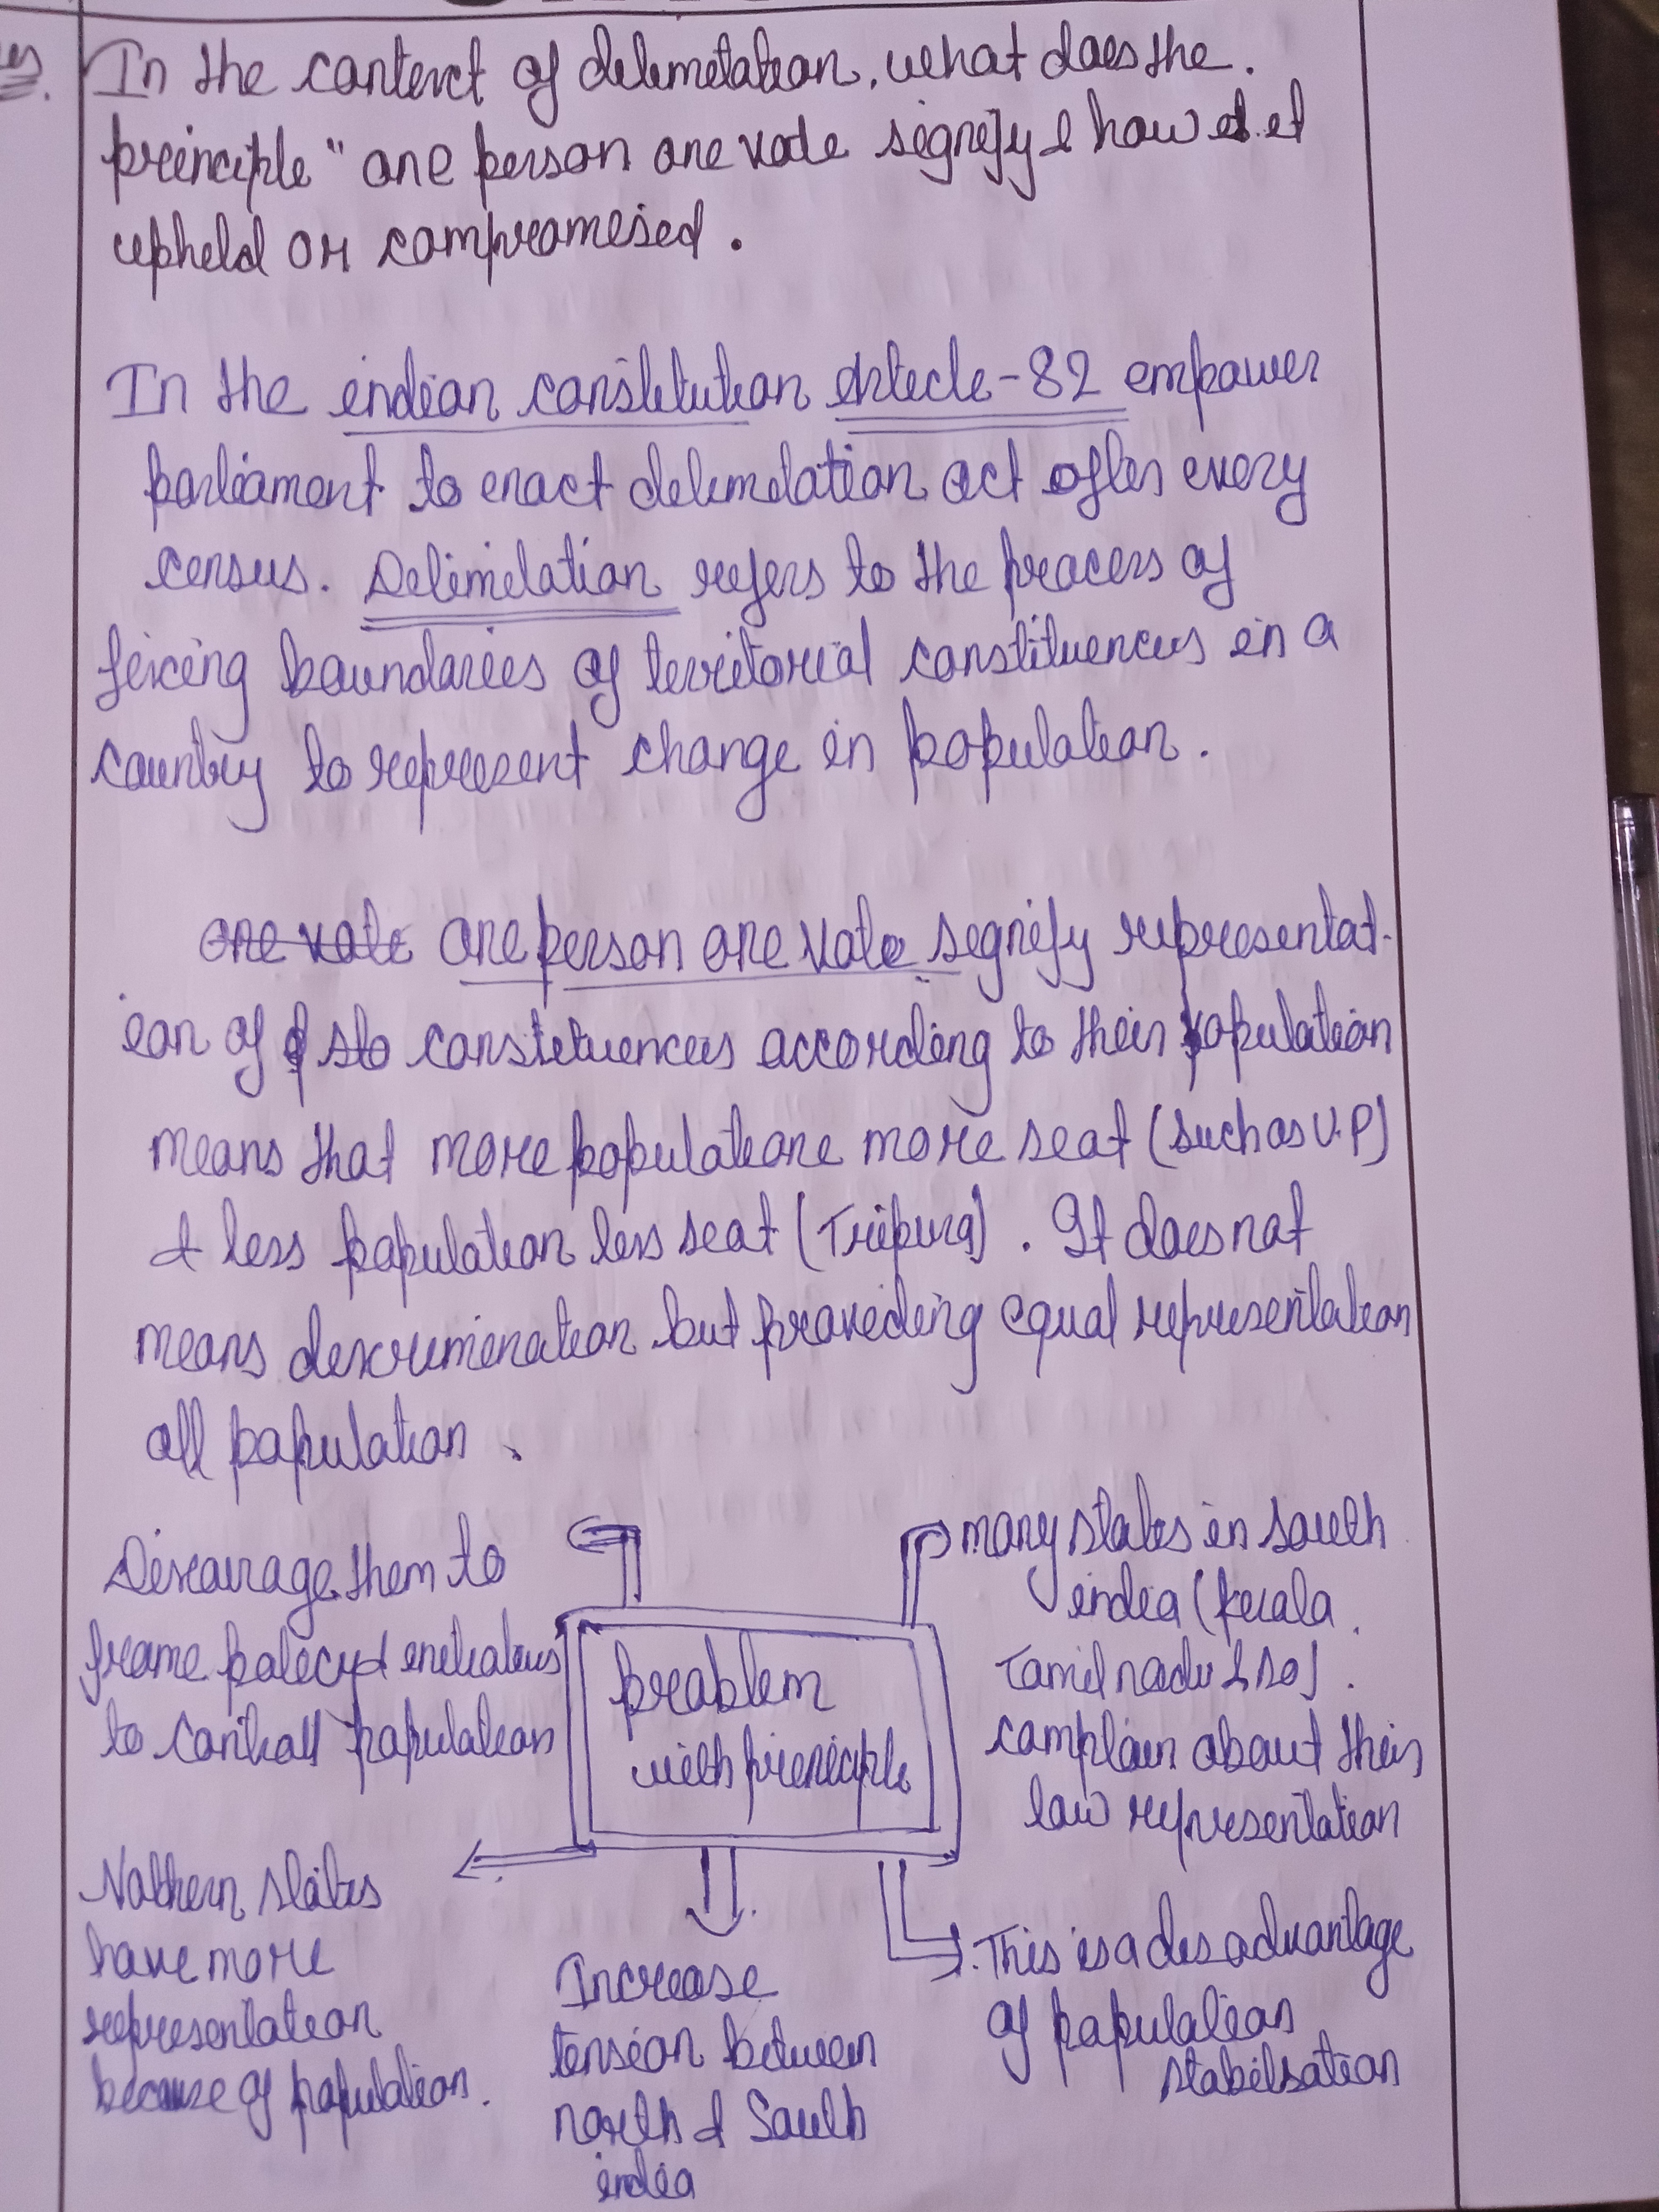 es.
In the context of delimetation, what does the.
preinciple " one person one vote signify & how is it
upheld or compromised.
In the indian constitution Article-82 empower
parliament to enact delimitation act after every
census. Delimitation refers to the process of
fixing boundaries of territorial constituencies in a
country to represent change in population.
one vote one person one vote signify representat-
ion of sto constituencies according to their population
means that more populatione more seat (such as U.P)
& less population less seat (Tripura). It does not
means descrimination but providing equal representation
all population.
Discourage them to
frame policy & initiatives
to controll population
many states in south
india (Kerala,
Tamil nadu & so).
complain about their
low representation
problem
with principle
Nothern states
have more
representation
because of population.
Increase
tension between
north & South
india
This is a disadvantage
of population
stabilsation